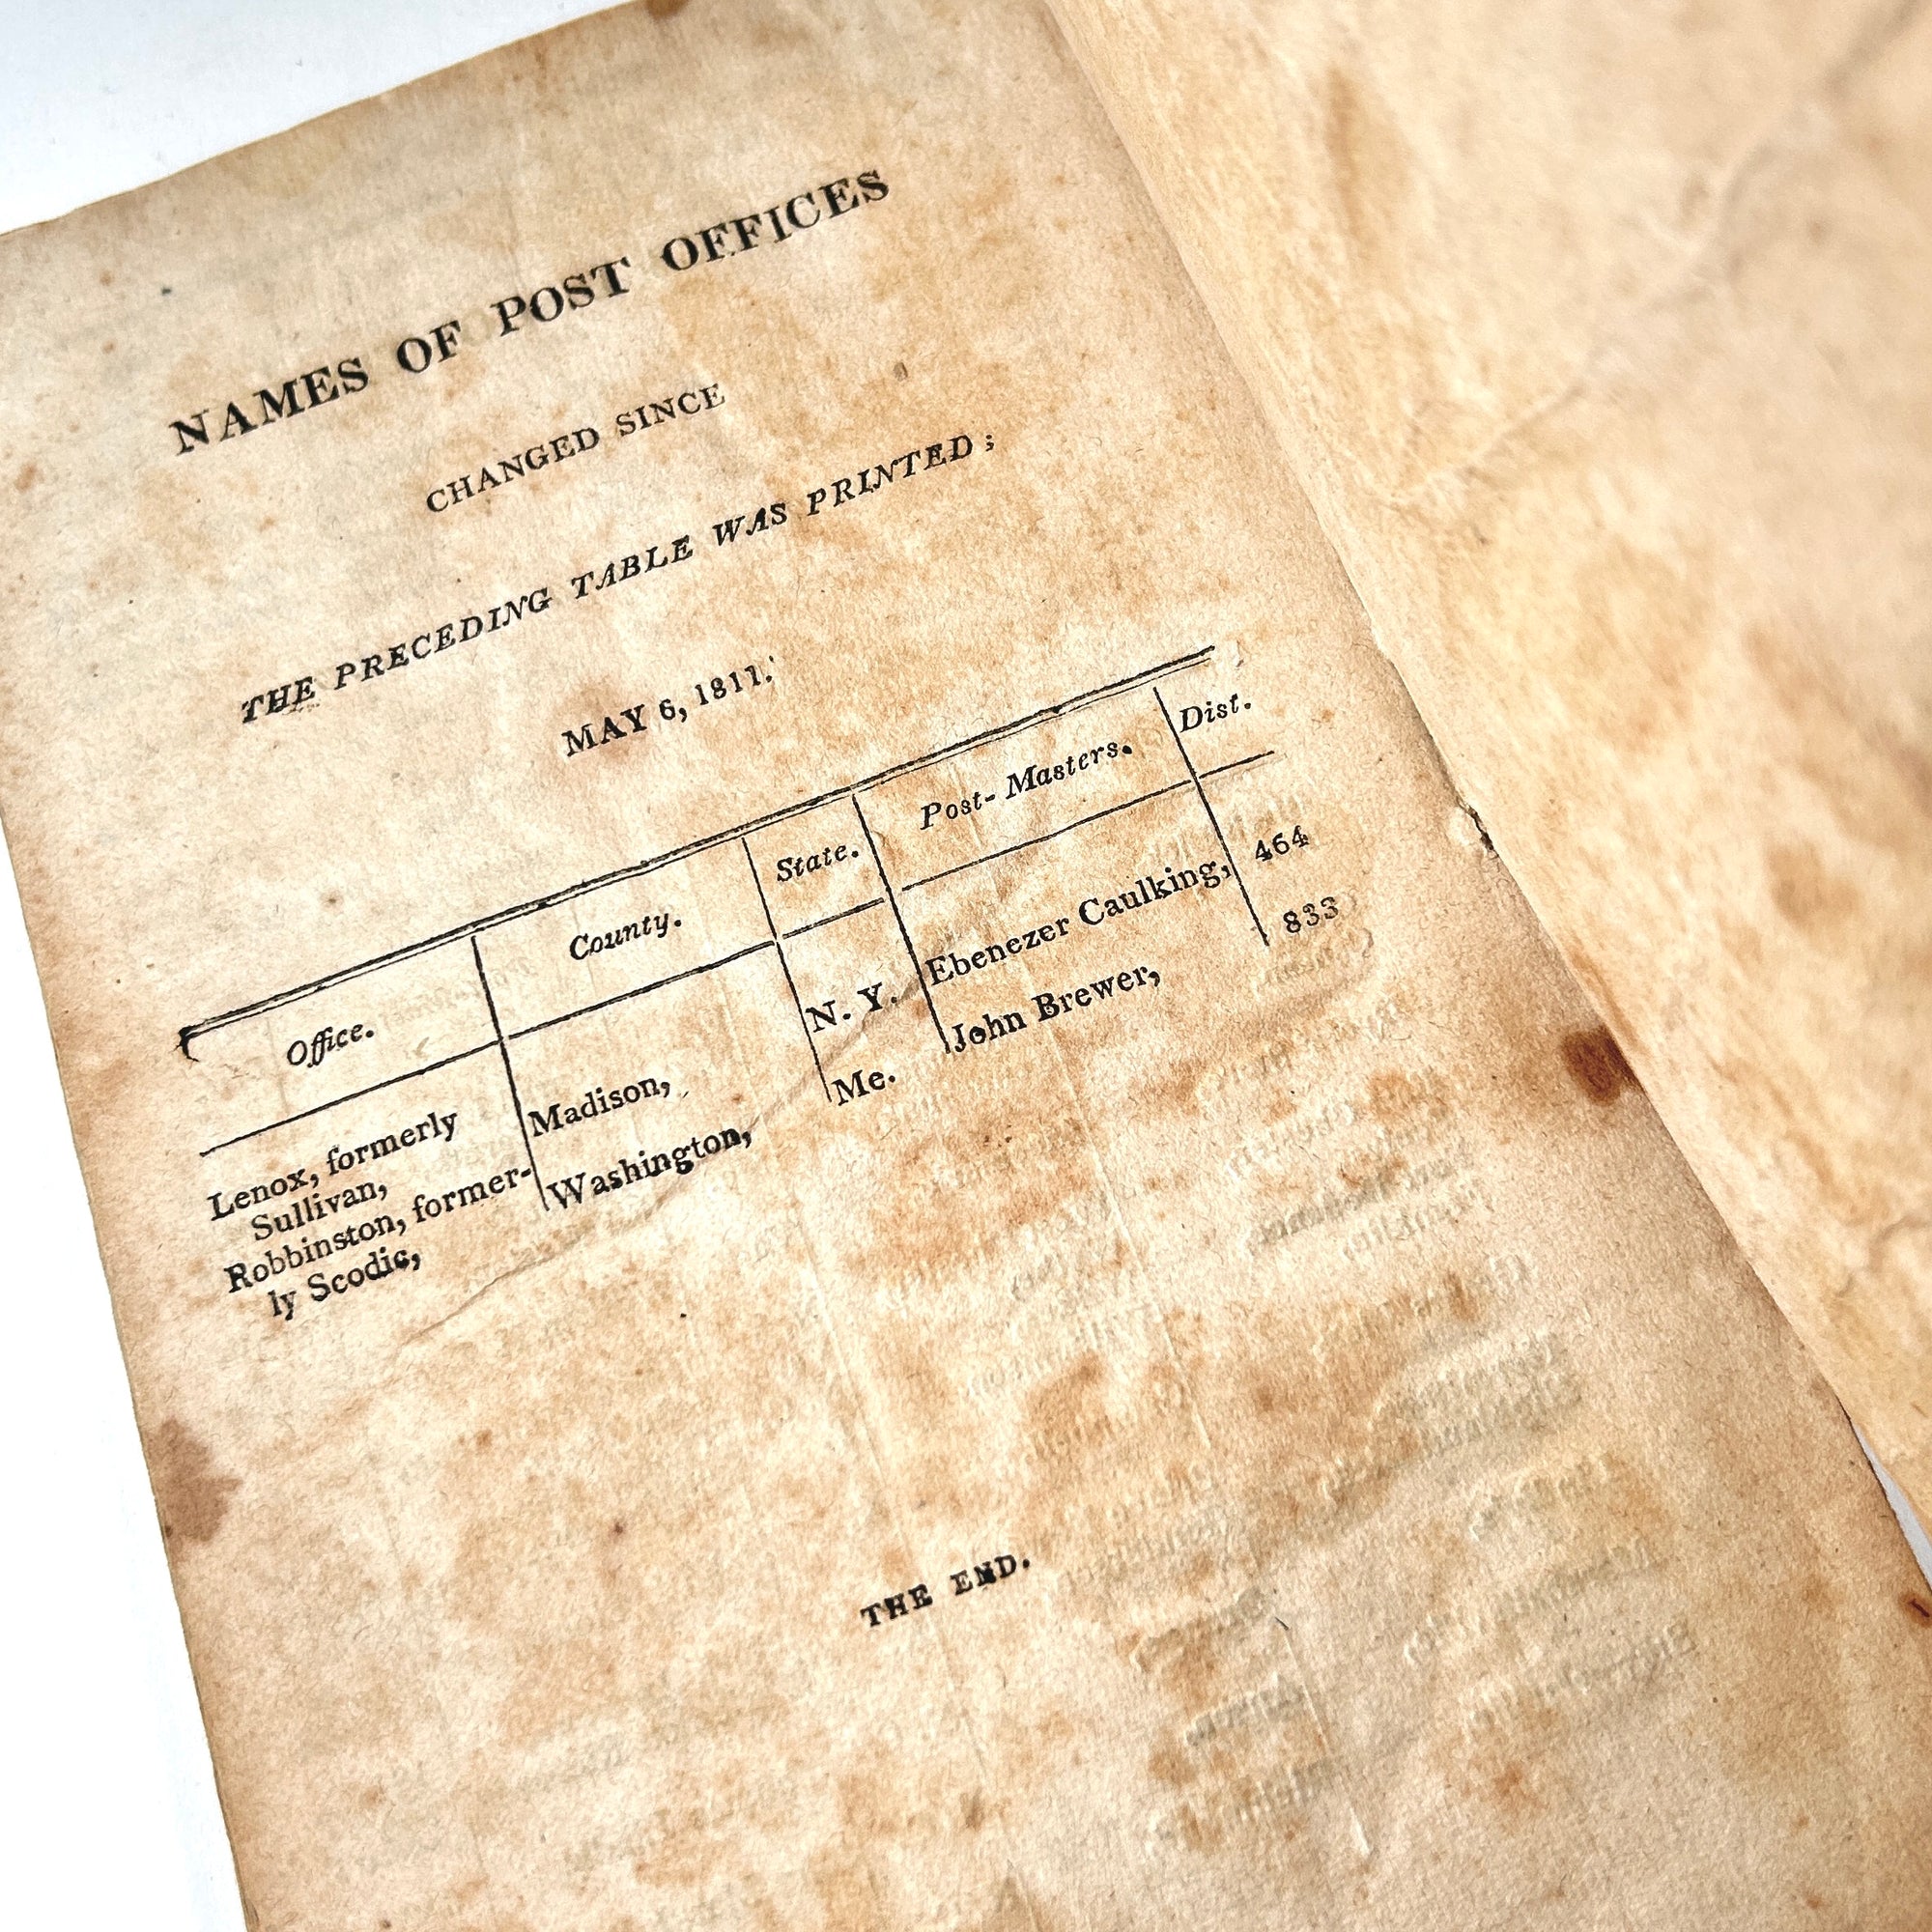 NAMES OF POST OFFICES
CHANGED SINCE
THE PRECEDING TABLE WAS PRINTED;
MAY 6, 1811.
Office. County. State. Post-Masters. Dist.
Lenox, formerly Madison, N. Y. Ebenezer Caulking, 464
Sullivan,
Robbinston, former- Washington, Me. John Brewer, 833
ly Scodic,
THE END.